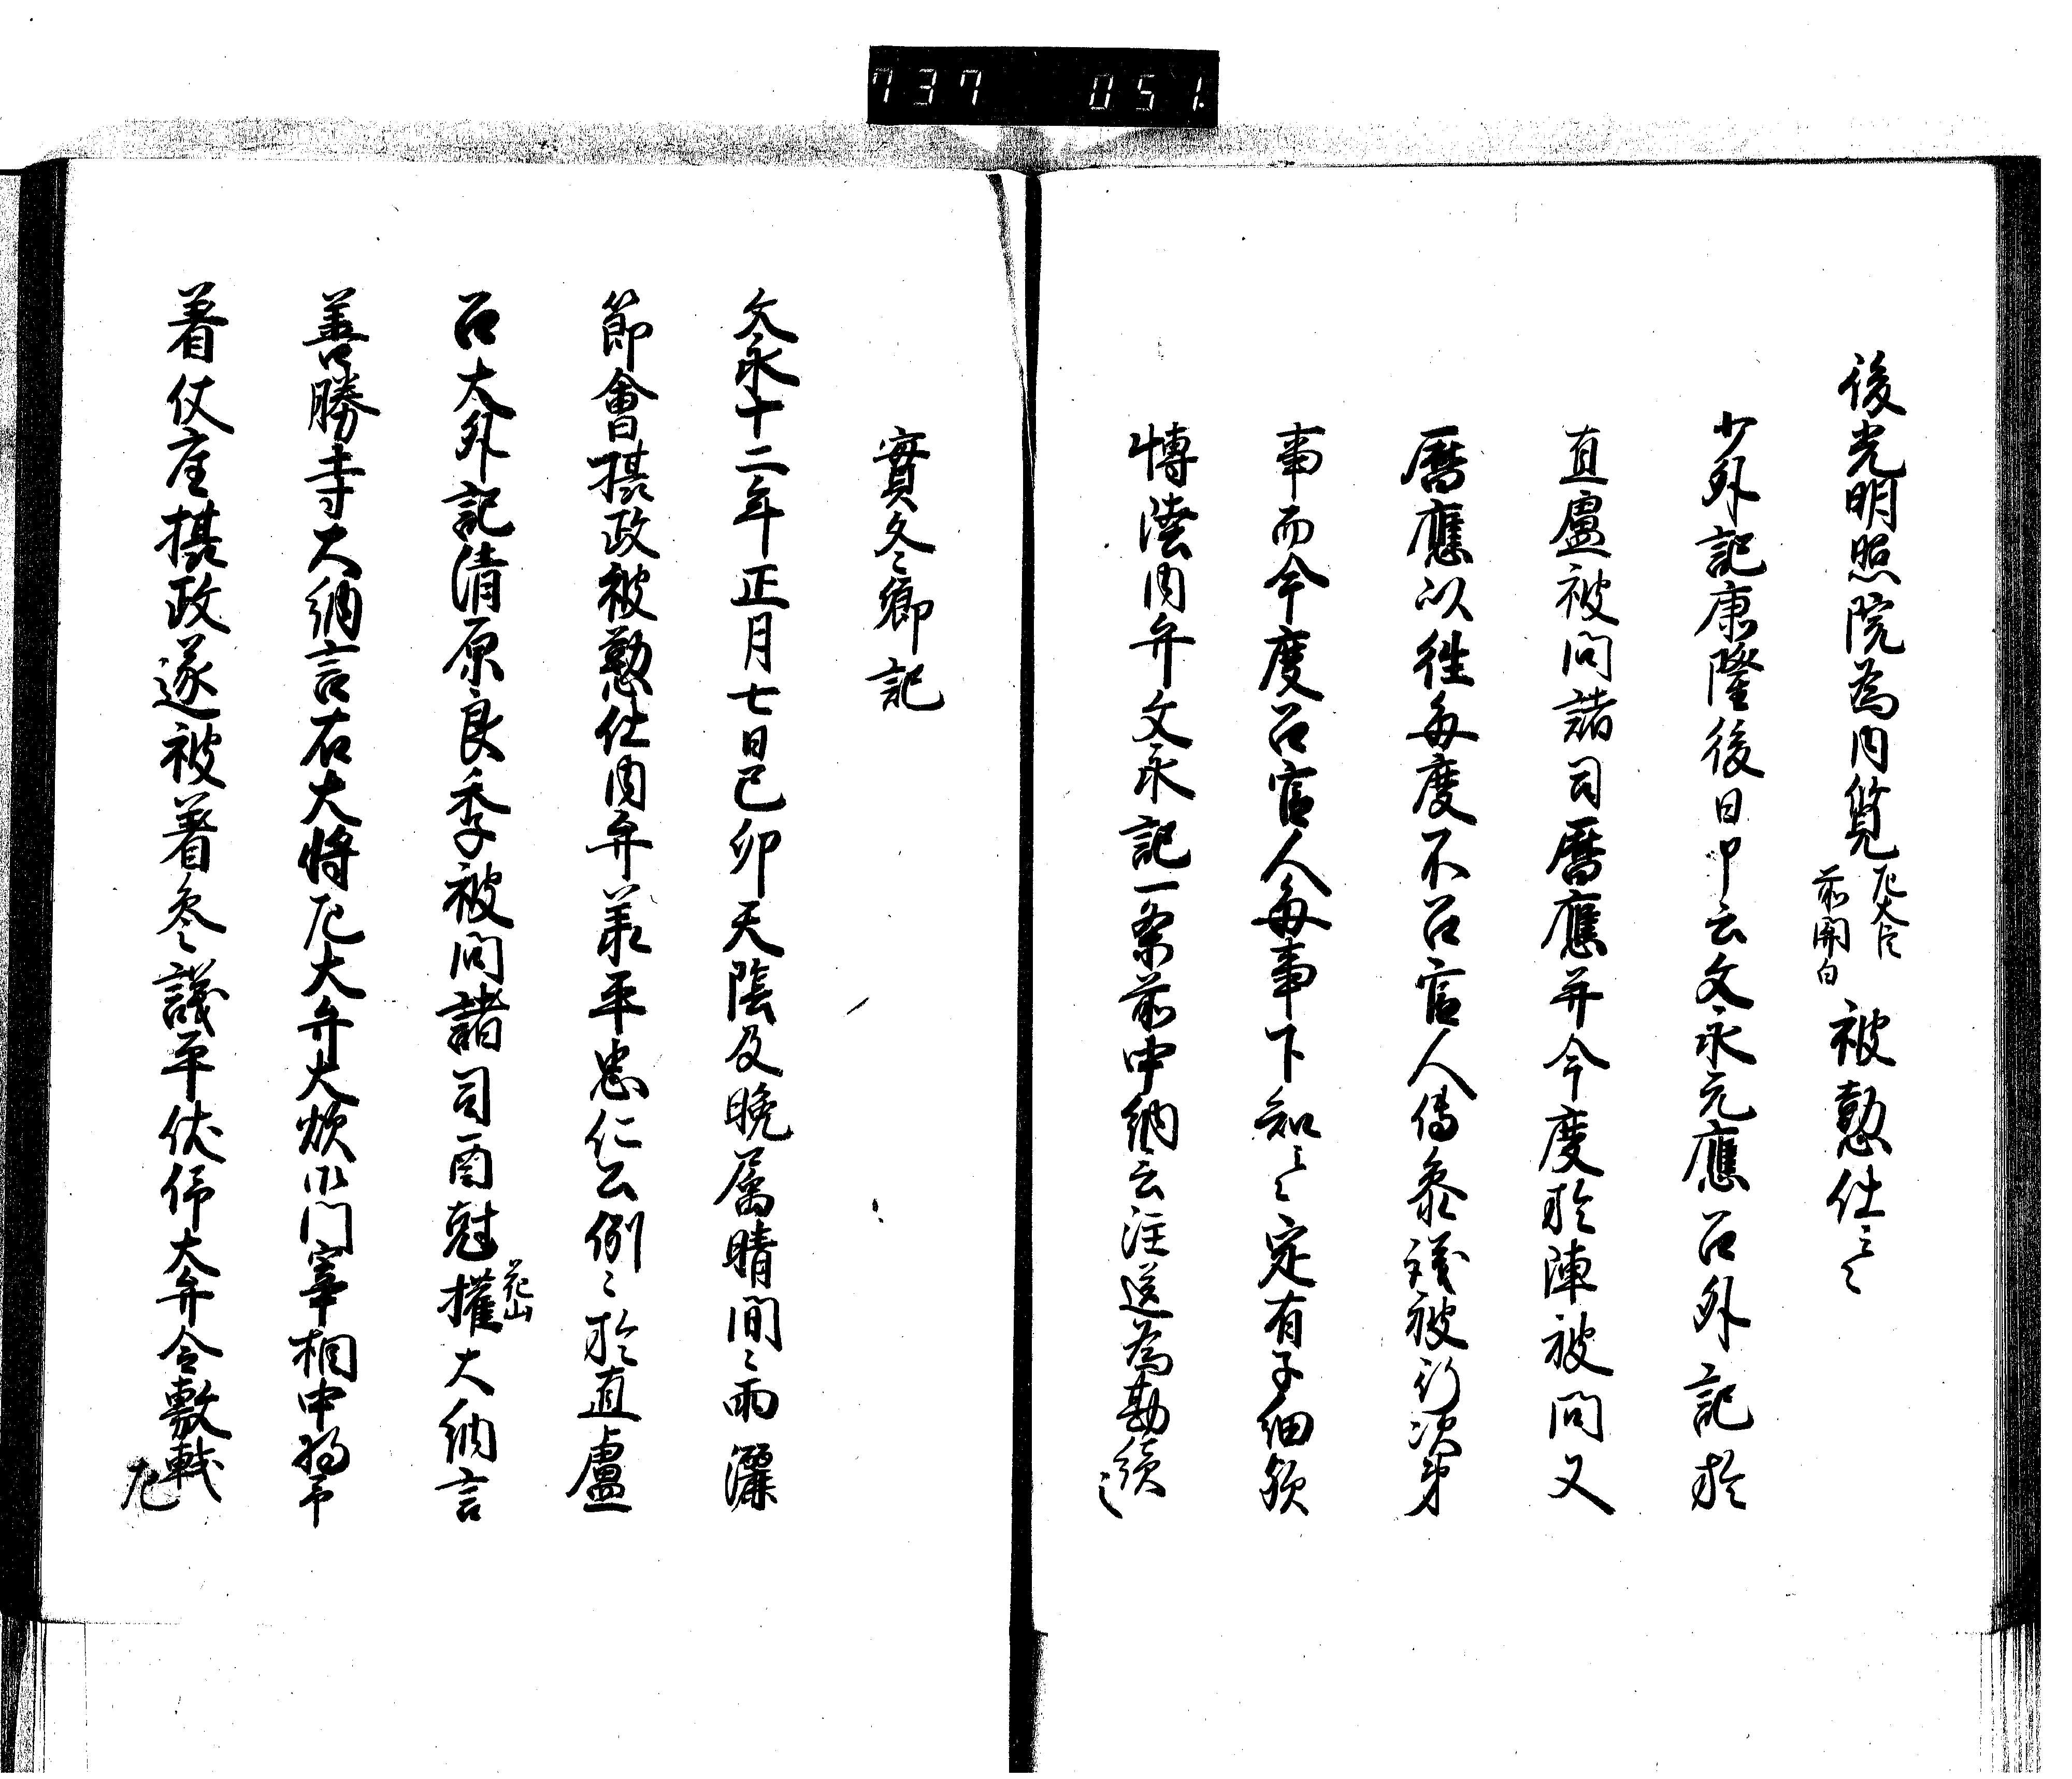 737 051
後光明照院為内覧左大臣前関白被懃仕云々
少外記康隆後日申云文永元應召外記於
直盧被問諸司暦應并今度於陣被問又
暦應以往毎度不召官人傳参議被行次第
事而今度召官人毎事下知云々定有子細欤
博陸内弁文永記一条前中納言注送為勘續之
實冬卿記
文永十二年正月七日己卯天陰及晩属晴間々雨灑
節會摂政被懃仕内弁兼平忠仁公例々於直盧
召大外記清原良季被問諸司酉尅権花山大納言
善勝寺大納言右大将左大弁大炊御門宰相中将等
着仗座摂政遂被着参議平伏仰大弁令敷軾
左